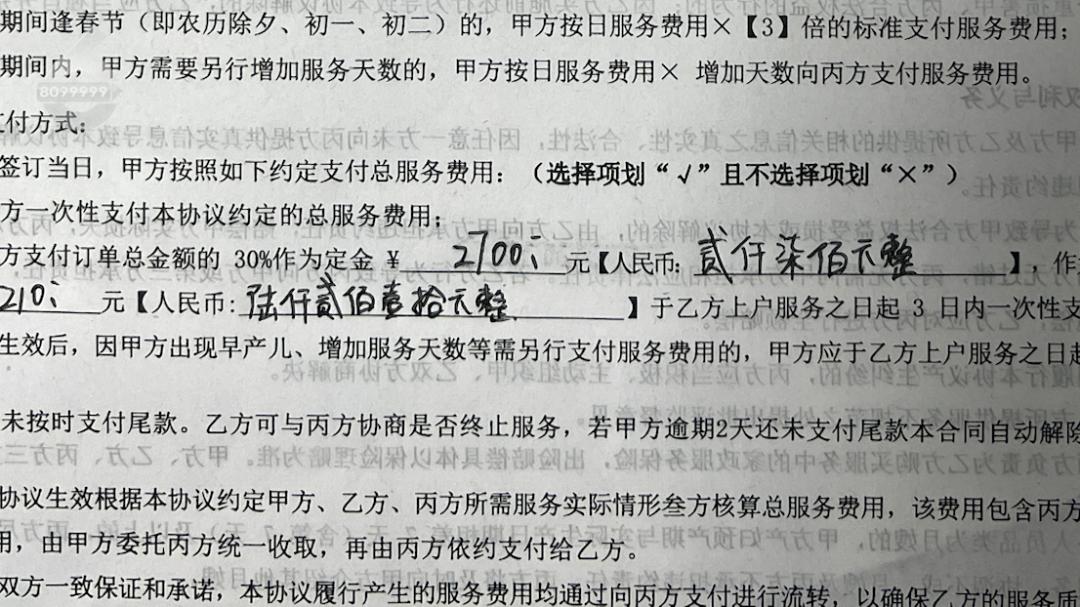 期间逢春节（即农历除夕、初一、初二）的，甲方按日服务费用×【3】倍的标准支付服务费用；
期间内，甲方需要另行增加服务天数的，甲方按日服务费用× 增加天数向丙方支付服务费用。
8099999
付方式：
签订当日，甲方按照如下约定支付总服务费用：（选择项划“√”且不选择项划“×”）
方一次性支付本协议约定的总服务费用；
方支付订单总金额的 30%作为定金 ¥ 2700 元【人民币：贰仟柒佰元整】，作
210 元【人民币：陆仟贰佰壹拾元整】于乙方上户服务之日起 3 日内一次性支
生效后，因甲方出现早产儿、增加服务天数等需另行支付服务费用的，甲方应于乙方上户服务之日起
未按时支付尾款。乙方可与丙方协商是否终止服务，若甲方逾期2天还未支付尾款本合同自动解除
协议生效根据本协议约定甲方、乙方、丙方所需服务实际情形叁方核算总服务费用，该费用包含丙方
用，由甲方委托丙方统一收取，再由丙方依约支付给乙方。
双方一致保证和承诺，本协议履行产生的服务费用均通过向丙方支付进行流转，以确保乙方的服务质